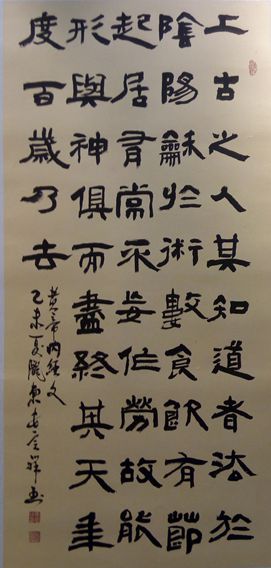 上古之人其知道者法於
陰陽龢於術數食飲有節
起居有常不妄作勞故能
形與神俱而盡終其天年
度百歲乃去
黄帝内經文
乙未夏隴東祥書